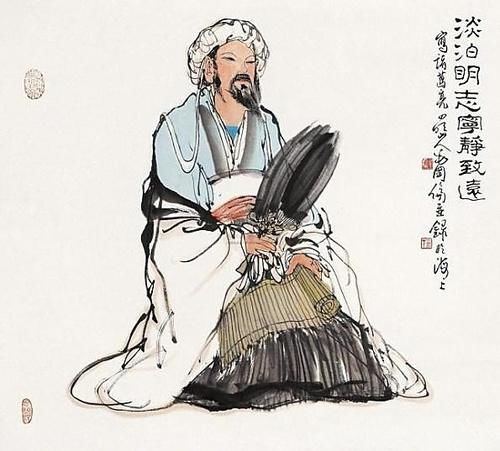 淡泊明志寧靜致遠
寫諸葛亮 山人 錄於海上